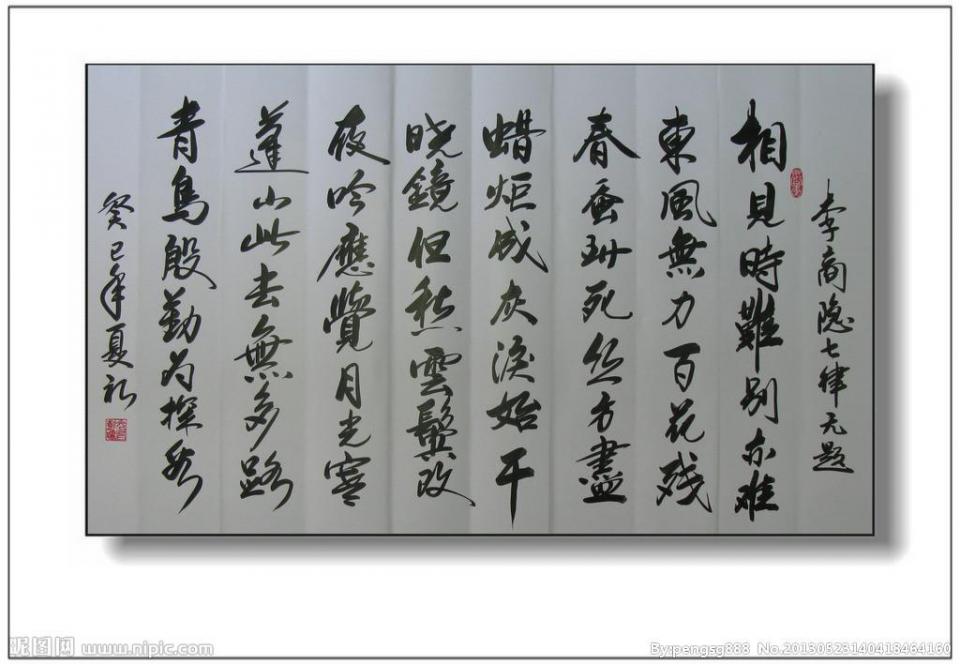 李商隐七律无题
相見時難别亦难
東風無力百花残
春蚕到死丝方盡
蜡炬成灰淚始干
晓鏡但愁雲鬓改
夜吟應覺月光寒
蓬山此去無多路
青鳥殷勤为探看
癸巳年夏
昵图网 www.nipic.com
By:pengsg888 No.20130523140413464160